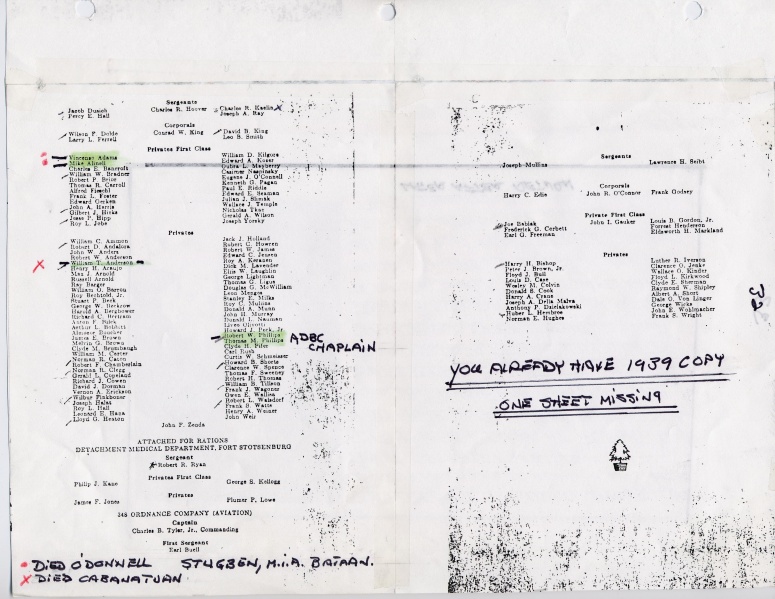 Sergeants
Jacob Dusich Charles R. Hoover Charles R. Kaelin X
Percy E. Hall Joseph A. Ray
Corporals
Wilson F. Dolde Conrad W. King David B. King
Larry L. Ferrell Leo B. Smith
Privates First Class
Vincenso Adams
Mike Ahnell
Charles E. Bancroft
William W. Bradner
Robert P. Brice
Thomas R. Carroll
Alfred Fieschl
Frank L. Foster
Edward Gerken
John A. Harris
Gilbert J. Hicks
Jesse P. Hipp
Roy L. Jobe
William D. Kilgore
Edward A. Koser
Dubra C. Mayberry
Casimer Naspinsky
Eugene J. O'Connell
Kenneth G. Pagan
Paul E. Riddle
Edward E. Seaman
Julian J. Shmak
Wallace J. Temple
Nicholas Tkac
Gerald A. Wilson
Joseph Yorsky
Privates
William C. Ammon
Robert D. Andalora
John W. Anders
Robert W. Anderson
X William T. Anderson
Henry H. Araujo
Max J. Arnold
Russell Arnold
Ray Barger
William G. Barron
Roy Bechtold, Jr.
Stuart P. Beck
George W. Beckrow
Harold A. Bergbower
Richard C. Bertram
Arthur L. Boldett
James E. Brown
Melvin G. Brown
Clyde M. Brumbaugh
William M. Carter
Norman R. Caton
Robert F. Chamberlain
Norman R. Clegg
Gerald L. Copeland
Richard J. Cowen
David J. Dorman
Vernon A. Erickson
Wilbur Finkboner
Joseph Halas
Roy L. Hall
Leonard E. Hana
Lloyd G. Heston
Jack J. Holland
Robert C. Howren
Robert W. James
Edward C. Jensen
Roy A. Keranen
Dick M. Lavender
Ellis W. Laughlin
George Lightman
Thomas G. Ligus
Douglas G. McWilliam
Leon Mengos
Stanley E. Milks
Roy C. Mullins
Donald A. Munn
John H. Murray
Donald L. Nauman
Liveo Olivotti
Howard J. Peck, Jr.
Robert W. Phillips ADBC
Thomas M. Phillips CHAPLAIN
Clyde H. Piter
Carl Roush
Curtis W. Schmeisser
Howard B. Shoots
Clarence W. Spence
Thomas F. Sweeney
Robert H. Thomas
William B. Tillson
Frank J. Wagoner
Owen E. Wallisa
Robert L. Walsdorf
Frank S. Watts
Henry A. Weiner
John Weir
John F. Zenda
ATTACHED FOR RATIONS
DETACHMENT MEDICAL DEPARTMENT, FORT STOTSENBURG
Sergeant
Robert R. Ryan
Privates First Class
Philip J. Kane George S. Kellogg
Privates
James F. Jones Plumer P. Lowe
348 ORDNANCE COMPANY (AVIATION)
Captain
Charles B. Tyler, Jr., Commanding
First Sergeant
Earl Buell
• DIED O'DONNELL STUGBEN, M.I.A. BATAAN.
X DIED CABANATUAN
Sergeants
Joseph Mullins Lawrence H. Seibt
Corporals
Harry C. Edie John R. O'Connor Frank Godsey
Private First Class
Joe Babiak John I. Gauker Louis B. Gordon, Jr.
Frederick G. Corbett Forrest Henderson
Earl G. Freeman Eldsworth H. Markland
Privates
Harry H. Bishop
Peter J. Brown, Jr.
Floyd J. Bull
Louis D. Case
Wesley M. Colvin
Donald S. Cook
Harry A. Crane
Joseph A. Della Malva
Anthony P. Dzielakowski
Huber L. Herebroe
Norman E. Hughes
Luther R. Iverson
Clarence O. Jenks
Wallace G. Kinder
Floyd L. Kirkwood
Clyde E. Sherman
Raymond W. Shipley
Albert A. Short
Dale O. Von Linger
George Wicks
John E. Wohlmacher
Frank S. Wright
32
YOU ALREADY HAVE 1939 COPY
ONE SHEET MISSING